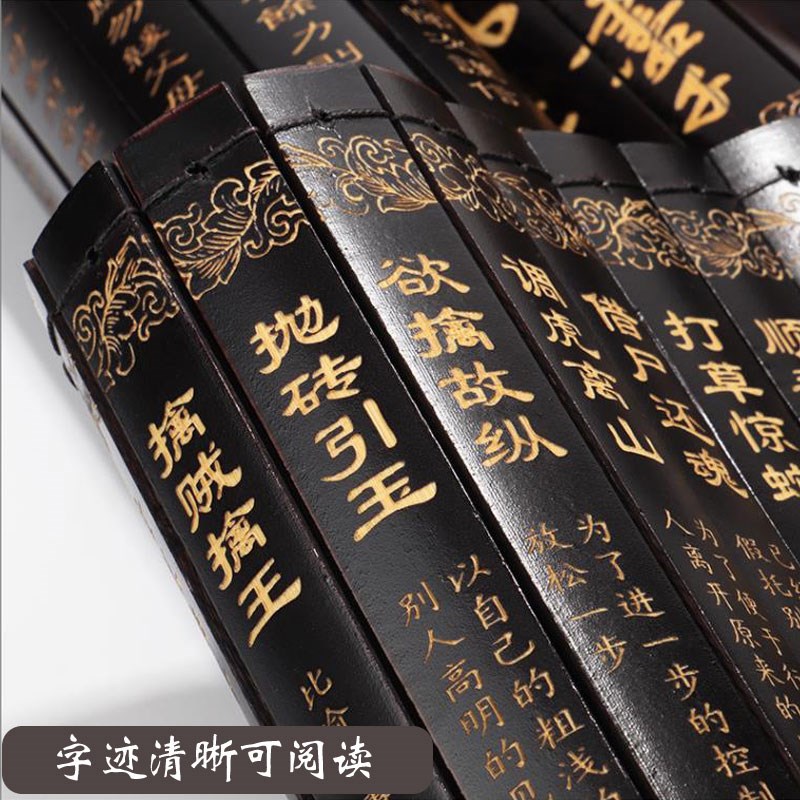 顺
打草惊蛇
借尸还魂
假托别
调虎离山
为了便于行
人离开原来的
欲擒故纵
为了进一步的控制
放松一步
抛砖引玉
以自己的粗浅
别人高明的见
擒贼擒王
比
餘力則
勿緩父母
字迹清晰可阅读